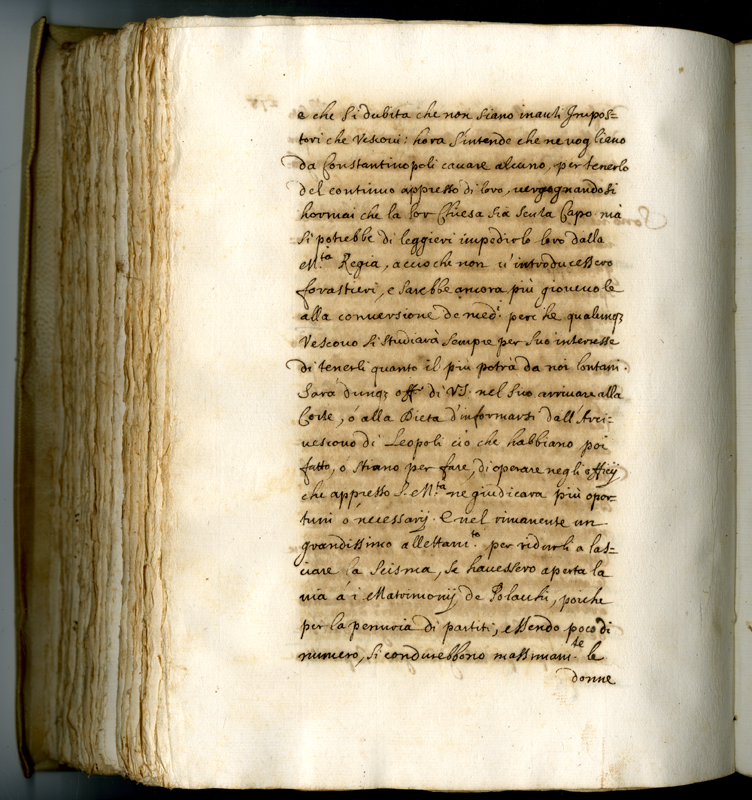 e che si dubita che non siano inanti Impos=
tori che Vescoui: hora s'intende che ne uogliano
da Constantinopoli cauare alcuno, per tenerlo
del continuo appresso di loro, uergognandosi
hormai che la lor Chiesa sia senza Capo. ma
si potrebbe di leggieri impedirlo loro dalla
M.ta Regia, accioche non u'introducessero
forastieri, e sarebbe ancora più gioueuole
alla conuersione de med.i perche qualunq3
Vescouo si studiarà sempre per suo interesse
di tenerli quanto il più potrà da noi lontani.
Sarà dunq3 off.o di V.S. nel suo arriuare alla
Corte, ó alla Dieta d'informarsi dall'Arci=
uescouo di Leopoli ciò che habbiano poi
fatto, o stiano per fare, di operare negli officij
che appresso S. M.ta ne giudicara più opor=
tuni ò necessarij. E nel rimanente un
grandissimo allettam.to per ridurli a las=
ciare la Scisma, se hauessero aperta la
uia á i Matrimonij de Polacchi, poiche
per la penuria di partiti, essendo poco di
numero, si condurebbono massimam.te le
donne